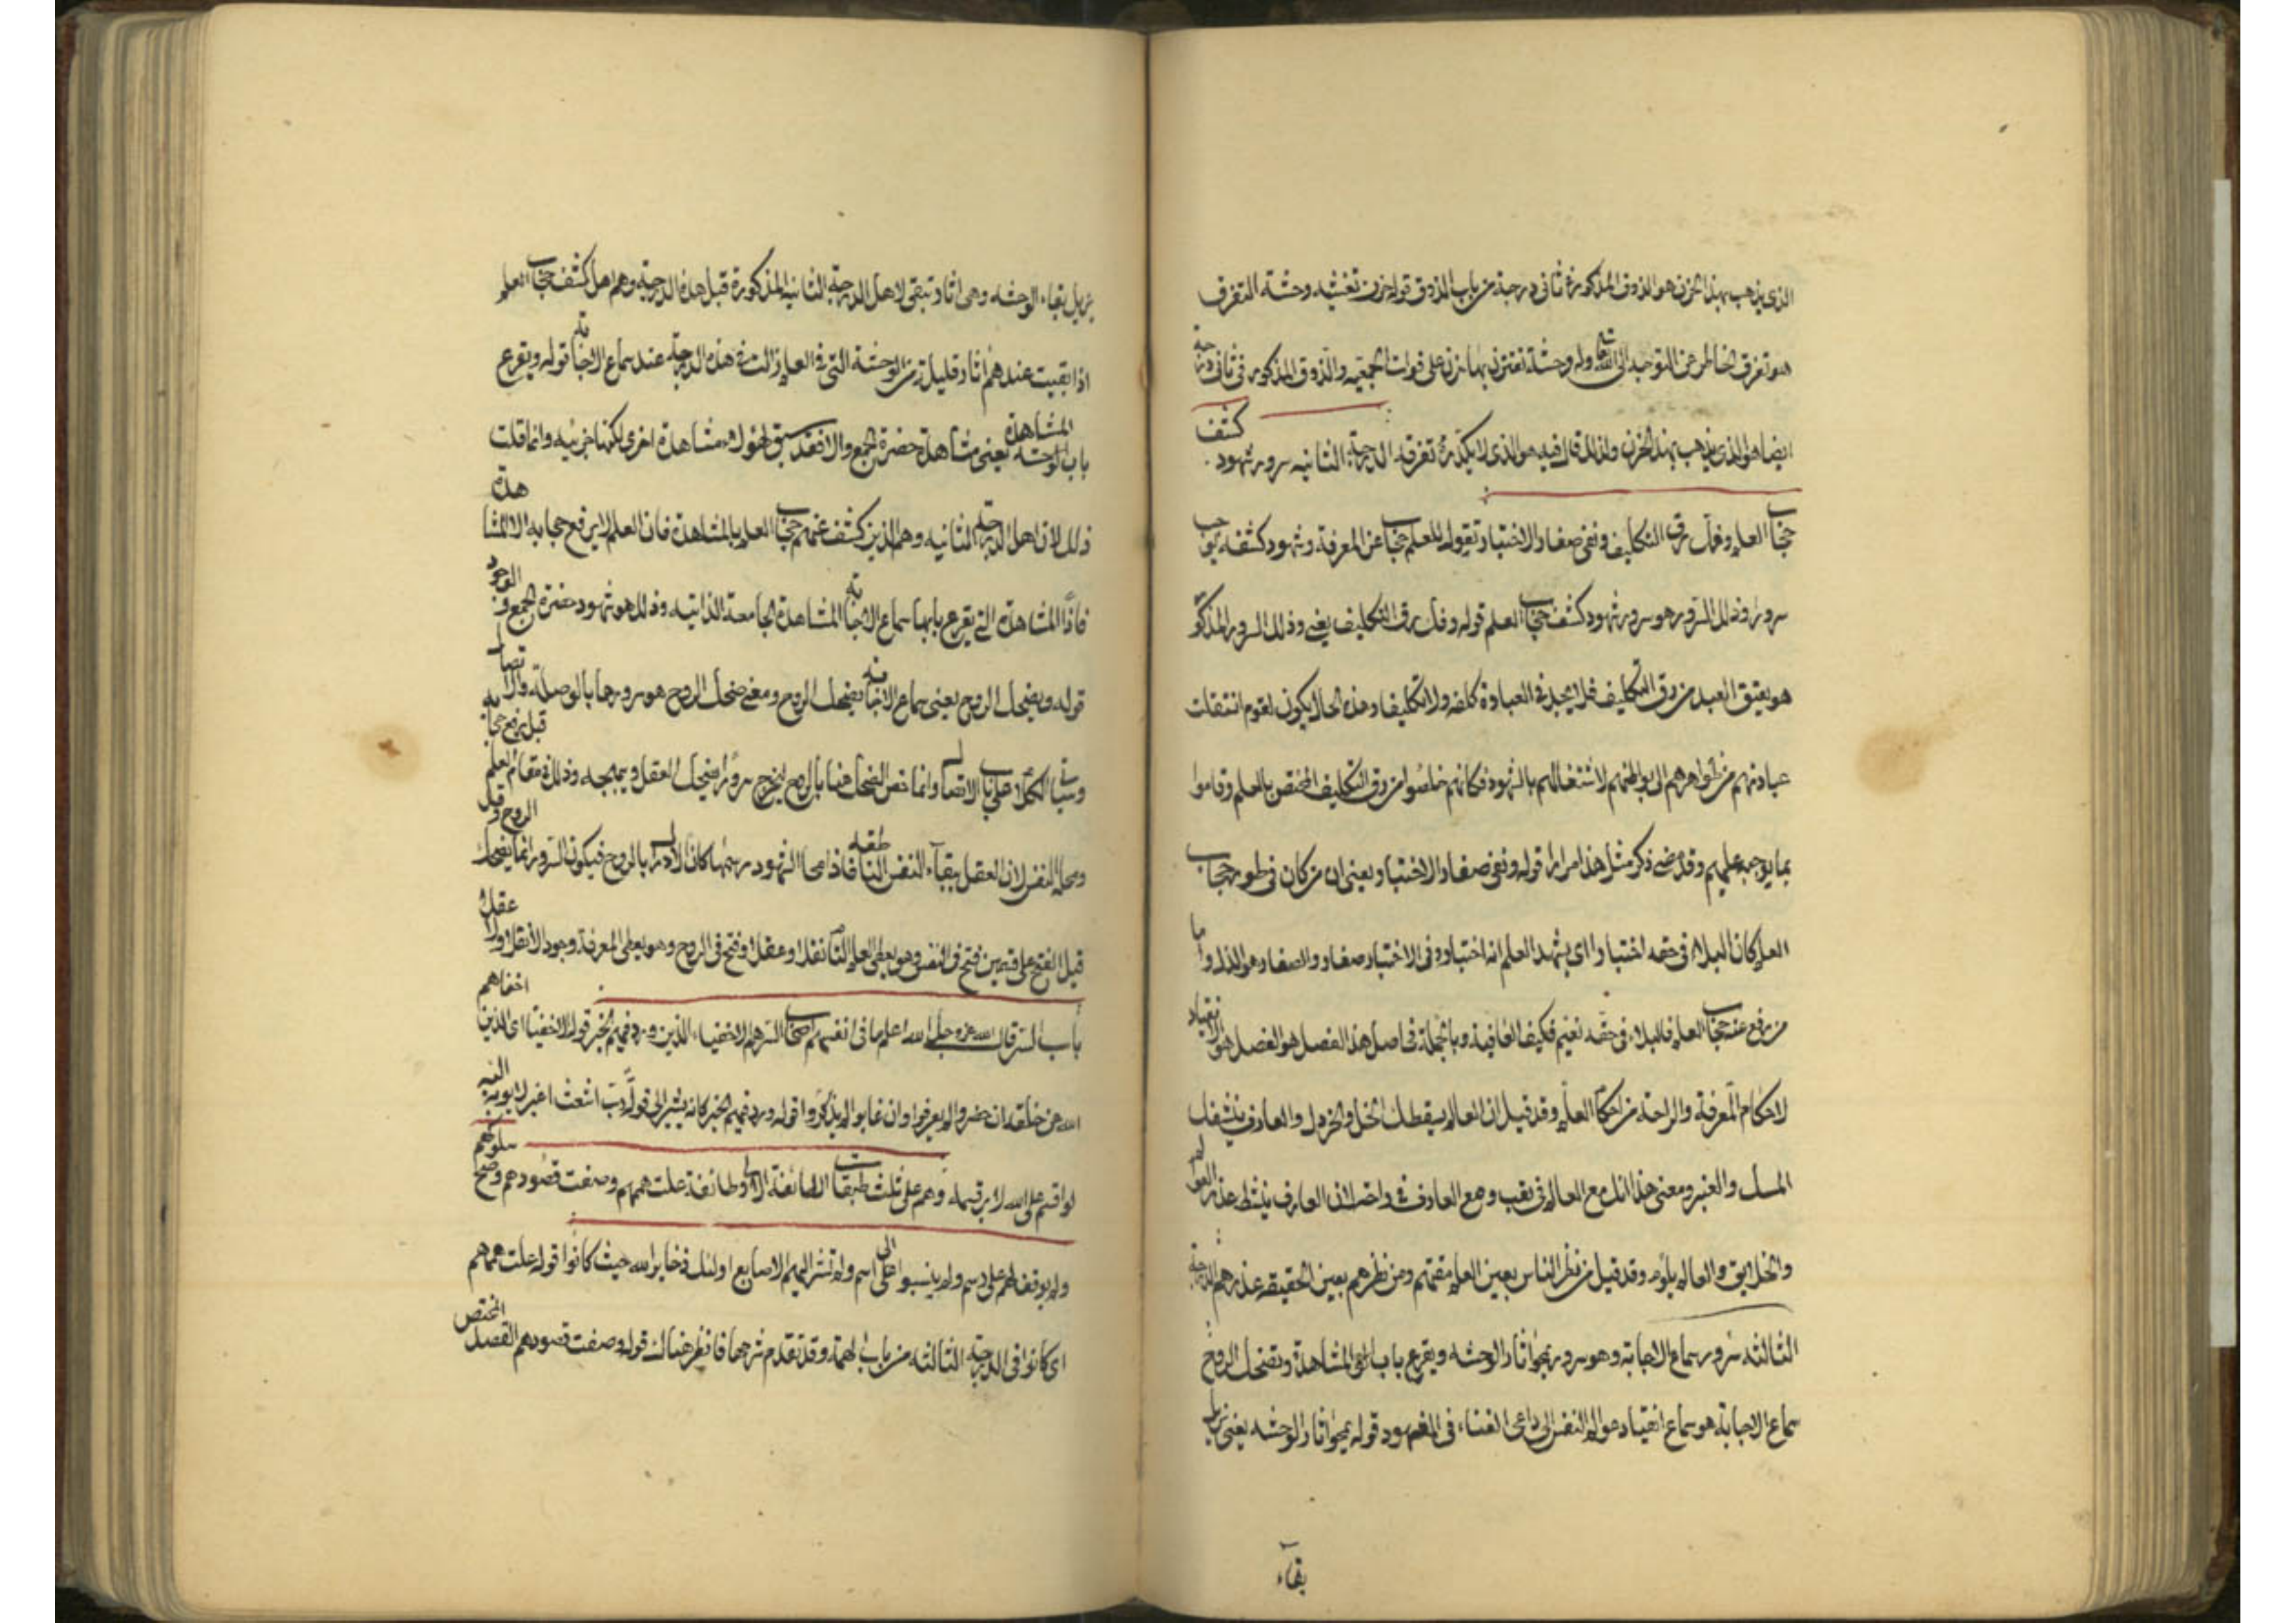 الذى يذهب بهذا الحزن هو الذوق المذكور فى ثانى درجة من باب الذوق قوله حزن تغشيه وحشة التفرق
هو تفرق الخاطر عن التوحيد الى وله وحشة تقترن بها حزن على فوات الجمعيه والذوق المذكور فى ثانى درجة
ايضا هو الذى يذهب بهذا الحزن ولذلك قال فيه هو الذى لا يكدره تفرقه الدرجة الثانيه سرور شهود كشف
حجاب العلم وفك رق التكليف ونفى صغار الاختيار تقوله للعلم حجاب عن المعرفة وشهود كشفه يوجب
سرورا وذلك السرور هو سرور شهود كشف حجاب العلم قوله وفك رق التكليف يعنى وذلك السرور المذكور
هو يعتق العبد من رق التكليف فلا يجد فى العبادة كلفه ولا تكليفا وهذه الحال يكون لقوم انتقلت
عبادتهم من ظواهرهم الى بواطنهم لاشتغالهم بالشهود فكانهم خلصوا من رق التكليف المختص بالعلم وقاموا
بما يوجبه عليهم وقد مضى ذكر مثل هذا مرارا قوله ونفى صغار الاختيار يعنى ان من كان فى طور حجاب
العلم كان البلاء فى حقه اختبارا اى يشهد العلم انه اختباره وفى الاختبار صغار والصغار هو الذل واما
من رفع عنه حجاب العلم فالبلاء فى حقه نعيم فكيف العافية وبالجملة فى اصل هذا الفصل هو الفصل هو الانقياد
لاحكام المعرفة والراحة من احكام العلم وقد قيل ان العالم يسقطك الخل والخردل والعارف ينشقك
المسك والعنبر ومعنى هذا انك مع العالم فى تعب ومع العارف فى راحة لان العارف يبسط عذر العوالم
والخلايق والعالم يلوم وقد قيل من نظر الناس بعين العلم مقتهم ومن نظرهم بعين الحقيقه عذرهم الدرجة
الثالثه سرور سماع الاجابة وهو سرور يمحوا اثار الوحشه ويقرع باب المشاهدة وتضحك الروح
سماع الاجابة هو سماع انقياد النفس الى داعى الفناء فى قوله يمحوا اثار الوحشه يعنى يزيل
بقاء
يزيل بقاء الوحشه وهى اثار تبقى لاهل الدرجة الثانيه المذكورة قبل هذه الدرجة وهم اهل كشف حجاب العلم
اذا بقيت عندهم اثار قليلة من الوحشة التى فى العلم زالت فى هذه الدرجة عند سماع الاجابة قوله ويقرع
باب المشاهدة يعنى مشاهدة حضرة الجمع والا فقد سبق لهؤلاء مشاهدة اخرى لكنها جزئيه وانما قلت
ذلك لان اهل الدرجة الثانيه وهم الذين كشف عنهم حجاب العلم بالمشاهدة فان العلم لا يرفع حجابه الا المشاهدة
فاذًا المشاهدة التى يقرع بابها سماع الاجابة المشاهدة الجامعة الذاتيه وذلك هو شهود حضرة الجمع والوجود
قوله ويضحك الروح يعنى سماع الاجابة يضحك الروح ومعنى ضحك الروح هو سرورها بالوصلة والاتصال
وسياتى الكلام على باب الاتصال وانما خص الضحك هنا بالروح ليخرج سرورا يضحك العقل ويبهجه وذلك فى مقام العلم قبل رفع حجابه
ومحله النفس لان العقل ببقاء النفس الناطقه فاذا محا الشهود رسمها كان الادراك بالروح فيكون السرور انما يضحك الروح وقد
قيل الفتح على قسمين فتح فى النفس وهو يعطى العلم التام نقلا وعقلا وفتح فى الروح وهو يعطى المعرفة وجودا لا نقلا ولا عقلا
باب السر قال الله عز وجل الله اعلم بما فى انفسهم اصحاب السر هم الاخفياء الذين ورد فيهم الخبر قوله الاخفيا اى الذين اخفاهم
الله عن خلقه ان حضروا لم يعرفوا وان غابوا لم يذكروا قوله ورد فيهم الخبر كانه يشير الى قوله رب اشعث اغبر لا يوبه اليه
لو اقسم على الله لابر قسمه وهم على ثلث طبقات الطائفة الاولى طائفة علت هممهم وصفت قصودهم وصح سلوكهم
ولم يوقف لهم على رسم ولم ينسبوا الى اسم ولم تشر اليهم الاصابع اولئك ذخاير الله حيث كانوا قوله علت هممهم
اى كانوا فى الدرجة الثالثه من باب الهمة وقد تقدم شرحها فانظر هناك قوله وصفت قصودهم القصد المختص